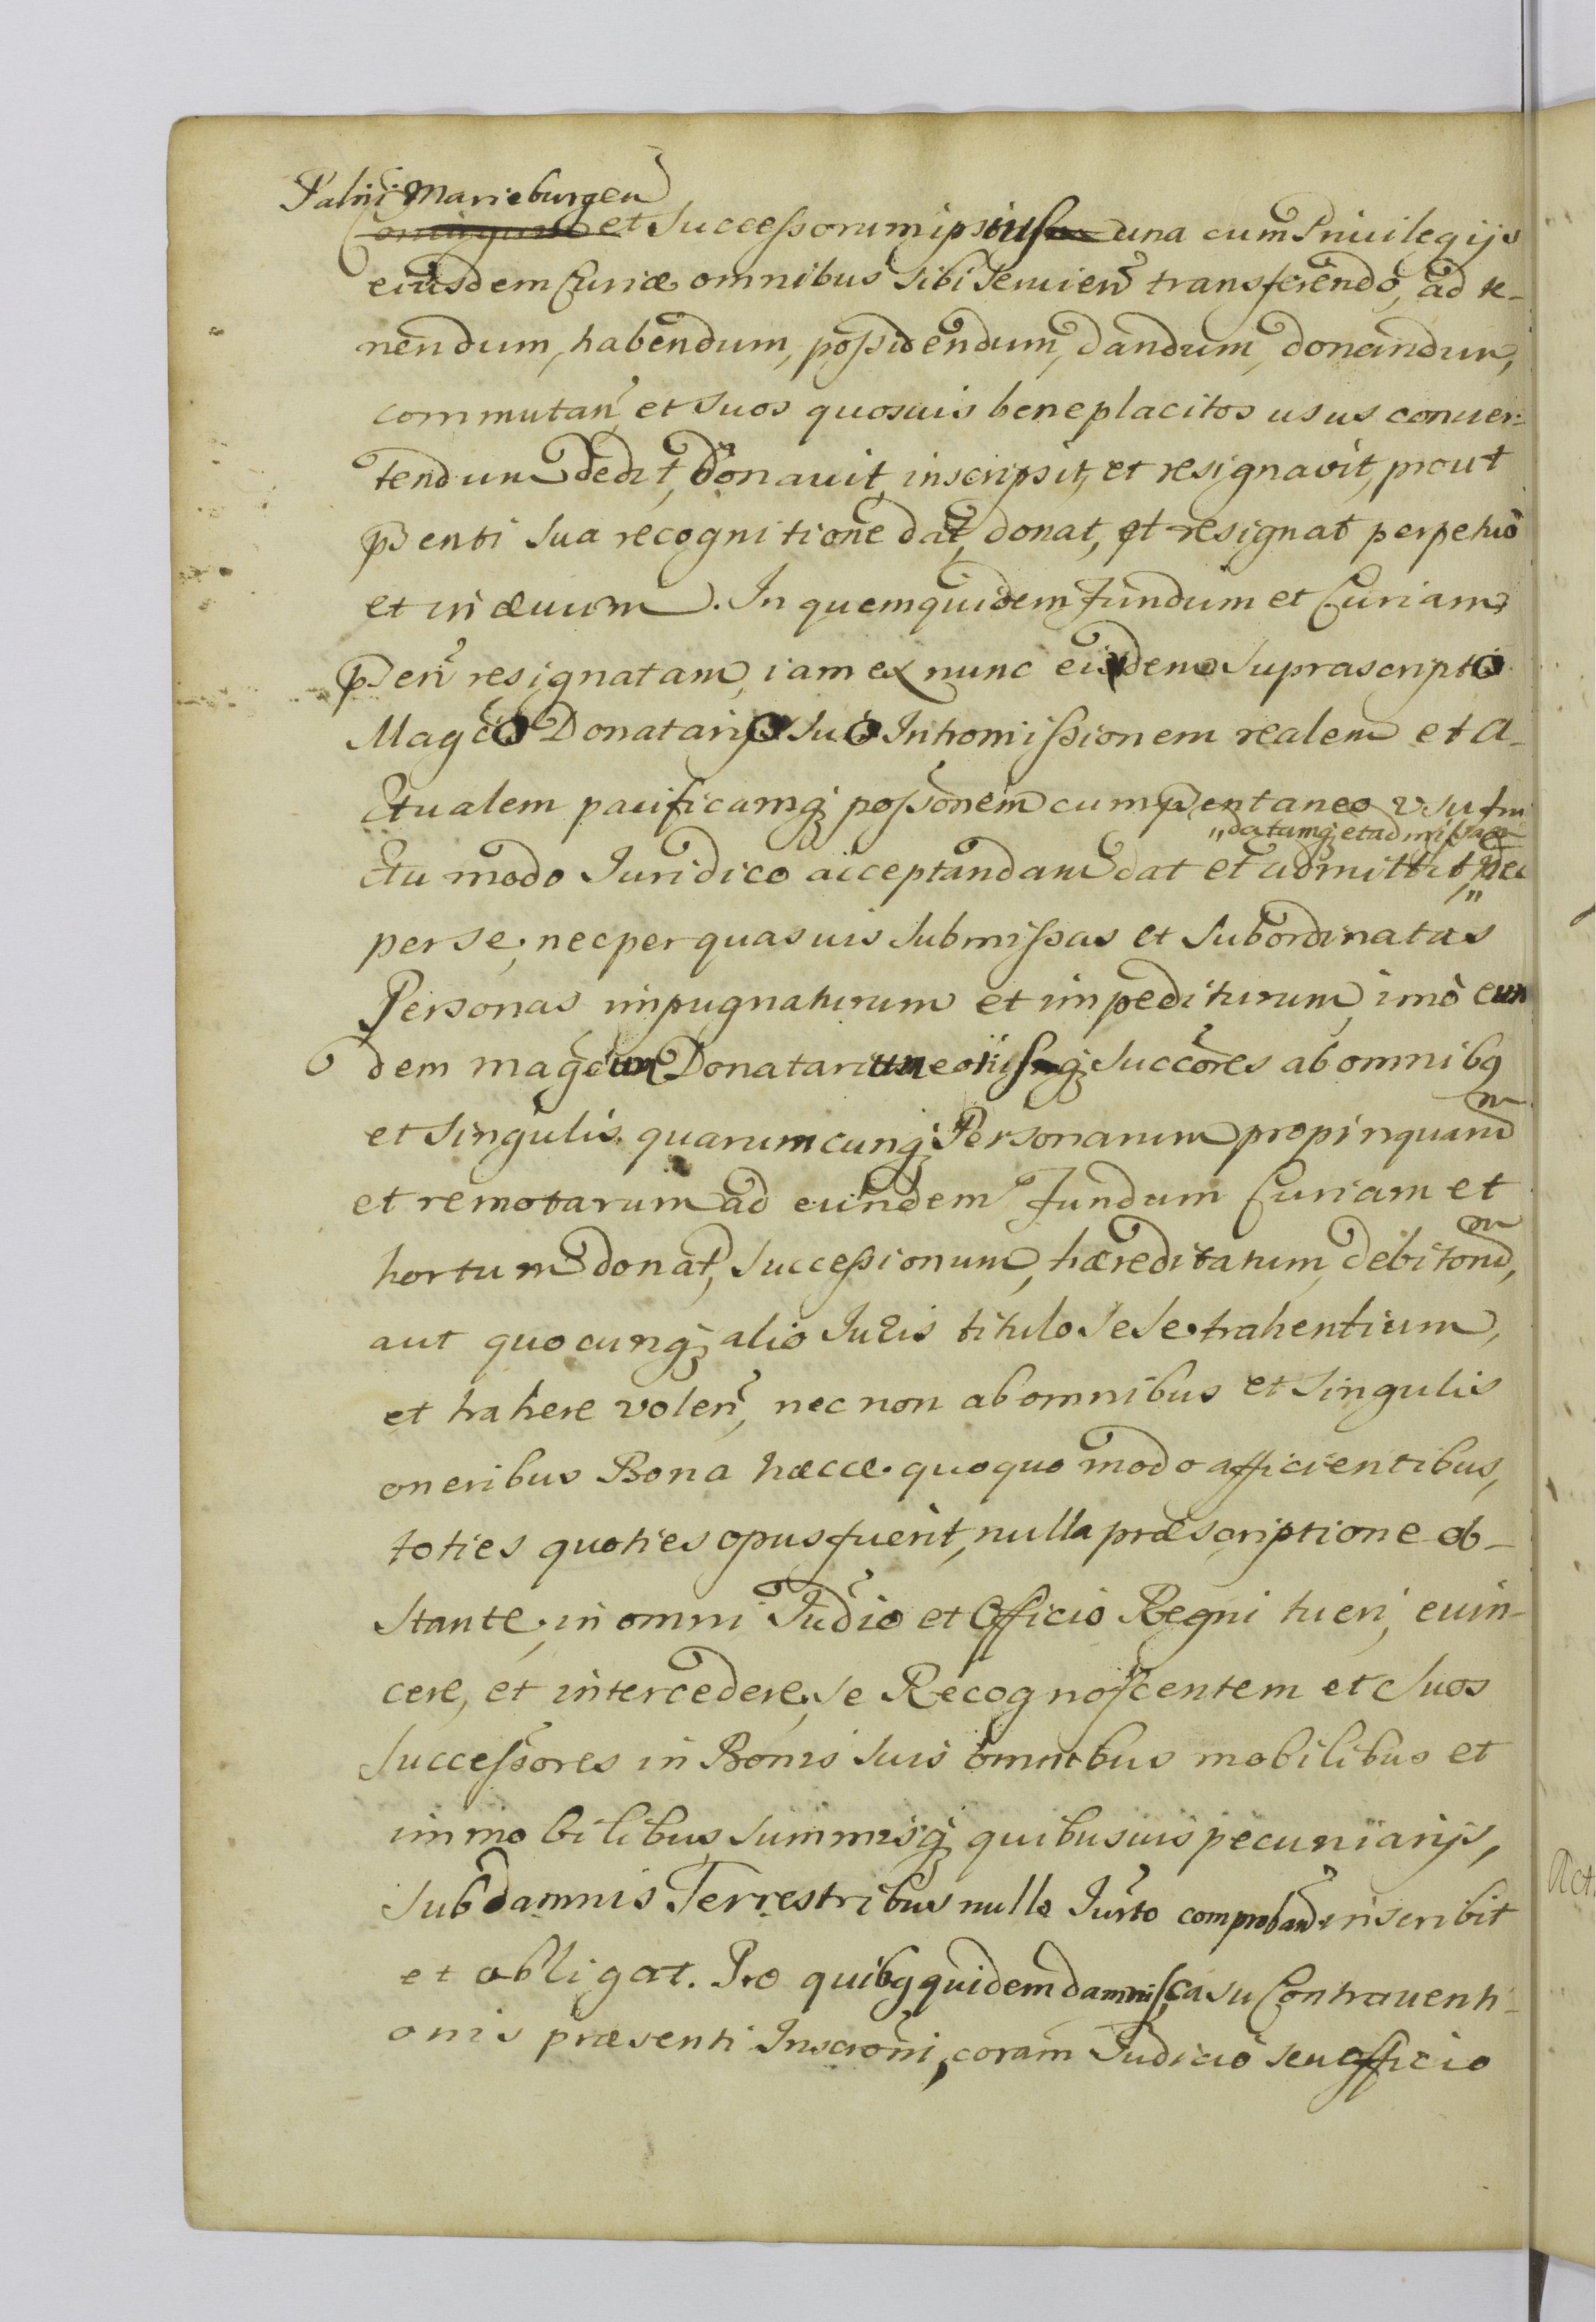 Palni Marieburgen
et Successorum ipsius una cum Priuilegijs
eiusdem Curiæ omnibus sibi seruien transferendo, ad te-
nendum, habendum, possidendum, dandum, donandum,
commutan, et suos quosuis beneplacitos usus conuer-
tendum dedit, donauit, inscripsit, et resignavit, prout
pnti sua recognitione dat, donat, et resignat perpetuò
et in æuum. In quem quidem Fundum et Curiam
resignatam, iam ex nunc eidem suprascripto
Magco Donatario suo Intromissionem realem et a-
ctualem pacificamq; possonem cum usu fru
"datamq; et admissam
ctu modo Iuridico acceptandam dat et admittit, nec
per se, nec per quasuis submissas et subordinatas
Personas impugnaturum et impediturum, imò eun
dem magcum Donatarium eiusq; succores ab omnibq
et singulis quarumcunq; Personarum propinquarum
et remotarum ad eundem Fundum Curiam et
hortum donat, successionum, hæreditatum, debitorum,
aut quocunq; alio Iuris titulo sese trahentium,
et trahere volen, nec non ab omnibus et singulis
oneribus Bona hæcce quoquo modo afficientibus,
toties quoties opus fuerit, nulla præscriptione ob-
stante, in omni Judio et Officio Regni tueri, euin-
cere, et intercedere, se Recognoscentem et suos
successores in Bonis suis omnibus mobilibus et
immobilibus, summisq; quibusuis pecuniarijs,
sub damnis Terrestribus nullo Iurto comproband inscribit
et obligat. Pro quibq quidem damnis, casu Contrauenti-
onis præsenti Inscroni, coram Judicio seu officio